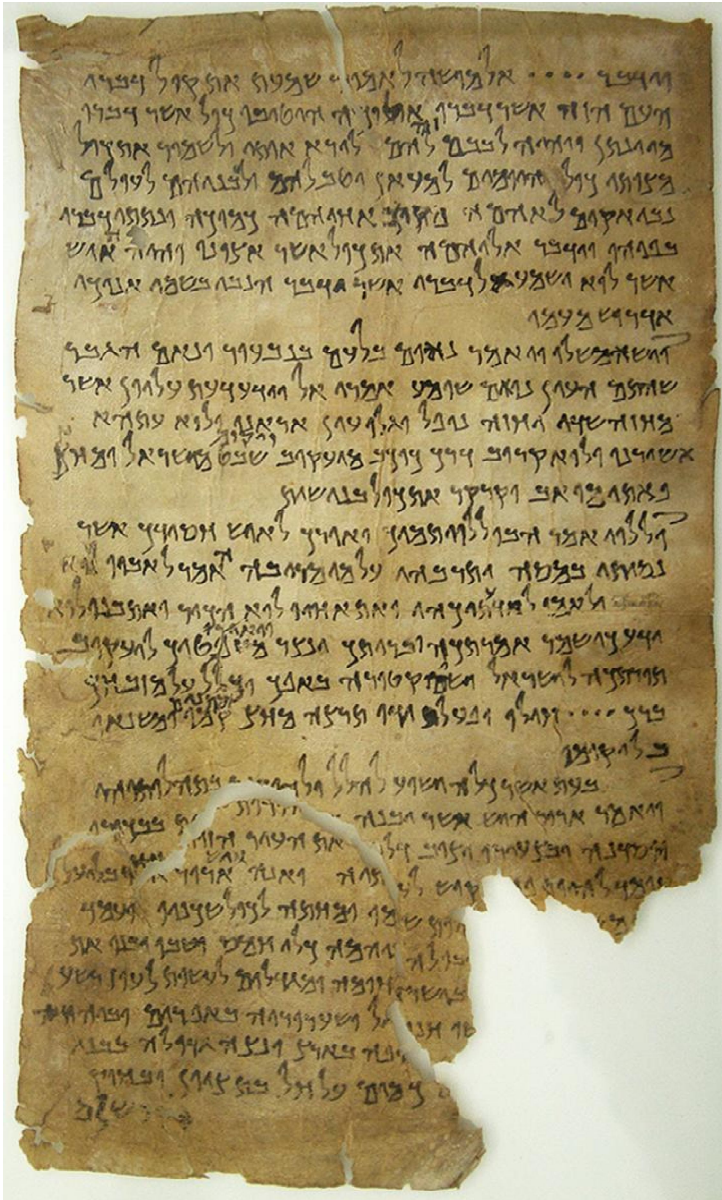 וידבר •••• אל מושה לאמור שמעת את קול דברי
העם הזה אשר דברו אליכה היטיבו כול אשר דברו
מי ינתן ויהיה לבבם זה להם לירא אותי ולשמור את כול
מצותי כול היומים למעאן יטב להם ולבניהם לעולם
נבי אקים לאהמה מקרב אחיהמה כמוכה ונתתי דברי
בפיהו וידבר אליהמה את כול אשר אצונו והיה האיש
אשר לוא ישמע אל דברי אשר ידבר הנבי בשמי אנוכי
אדרוש מעמו
וישא משלו ויאמר נאום בלעם בנבעור ונאם הגבר
שהתם העין נואם שומע אמרי אל וידע דעת עליון אשר
מחזה שדי יחזה נופל וגלו עין אראנו ולוא עתהא
אשורנו ולוא קרוב דרך כוכב מיעקוב ויקום שבט מישראל ומחץ
פאתי מואב וקרקר את כול בני שית
וללוי אמר הבו ללוי תמיך ואורך לאיש חסידך אשר
נסיתו במסה ותרבהו על מי מריבה האמר לאביו לוא
ולאמו לוא ידעתיכהו ואת אחיו לוא הכיר ואת בנו לוא
ידע כי שמר אמרתכה ובריתך ינצר ויאירו משפטיך ליעקוב
תורתכה לישראל ישים קטורה באפך וכליל על מזבחך
ברך •••• חילו ופעל ידו תרצה מחץ מתנים קמו ומשנאו
בל יקומו
בעת אשר כלה ישוע להלל ולהודות בתהלותיהו
ויאמר ארור היש אשר יבנה את העיר הזות בבכורו
ייסדנה ובצעירו יציב דלתיה ארור אחד בליעל
עומד להיות פח יקוש לעמו ומחתה לכול שכניו ועמד
חמס ושבו ובנו את
חומה ומגדלים לעשות לעוז רשע
בישראל ושערוריה באפרים וביהודה
חנופה בארץ ונצה גדולה בבני
כמים על חל בת ציון ובחוק
ירושלם